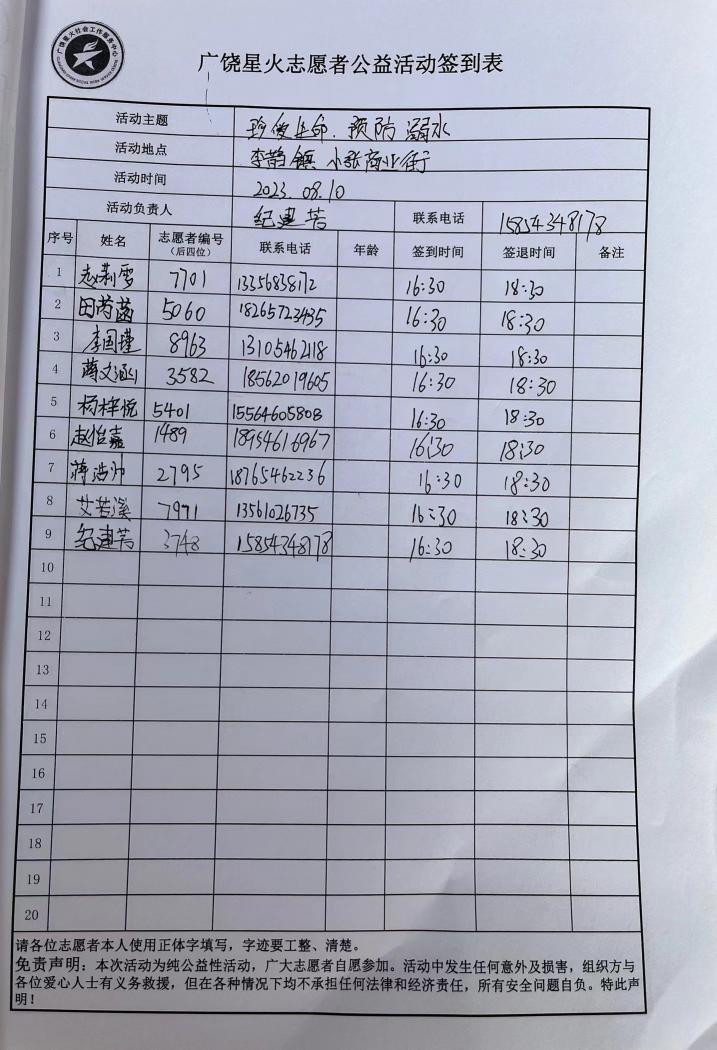 广饶星火社会工作服务中心
广饶星火志愿者公益活动签到表
活动主题 珍爱生命.预防溺水
活动地点 李鹊镇 小张商业街
活动时间 2023.08.10
活动负责人 纪建芳 联系电话 15854348178
序号 姓名 志愿者编号 (后四位) 联系电话 年龄 签到时间 签退时间 备注
1 7701 13356838172 16:30 18:30
2 田芮菡 5060 18265723435 16:30 18:30
3 李国瑾 8963 13105462118 16:30 18:30
4 蒋文涵 3582 18562019605 16:30 18:30
5 杨梓悦 5401 15564605808 16:30 18:30
6 赵怡嘉 1489 18954616967 16:30 18:30
7 蒋浩帅 2795 18765462236 16:30 18:30
8 艾若溪 7971 13561026735 16:30 18:30
9 纪建芳 3748 15854348178 16:30 18:30
10
11
12
13
14
15
16
17
18
19
20
请各位志愿者本人使用正体字填写，字迹要工整、清楚。
免责声明：本次活动为纯公益性活动，广大志愿者自愿参加。活动中发生任何意外及损害，组织方与
各位爱心人士有义务救援，但在各种情况下均不承担任何法律和经济责任，所有安全问题自负。特此声
明！